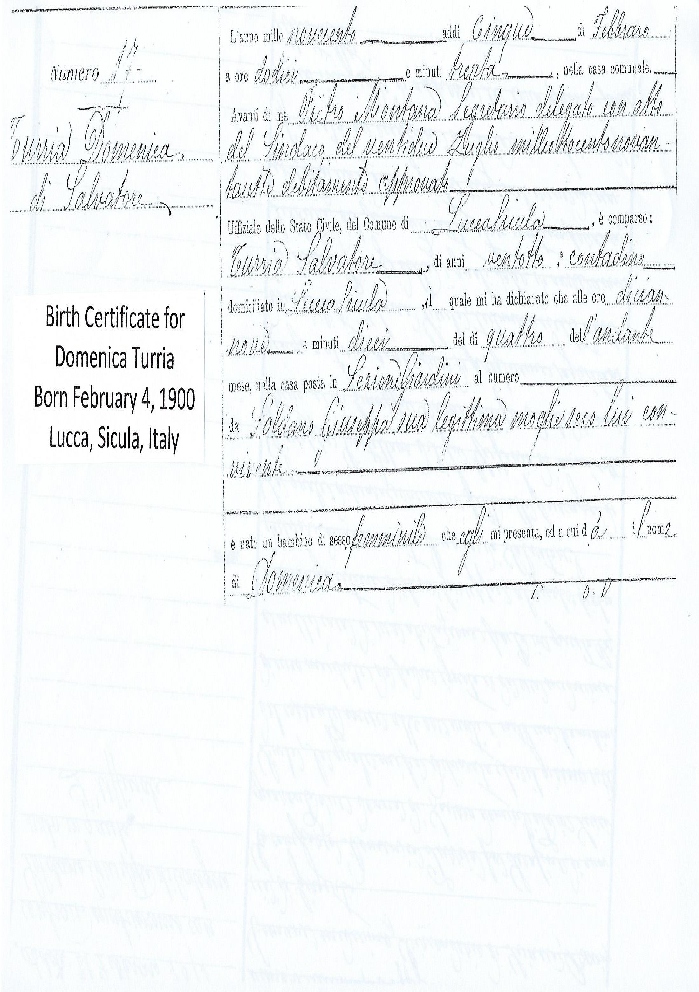 Numero 17
Turrià Domenica
di Salvatore
Birth Certificate for
Domenica Turria
Born February 4, 1900
Lucca, Sicula, Italy
L'anno mille novecento addì Cinque di Febbraro
a ore dodici e minuti trenta, nella casa comunale.
Avanti di me Pietro Montana Segretario delegato con atto
del Sindaco del ventidue Luglio milleottocentonovan-
debitamente approvato
Uffiziale dello Stato Civile, del Comune di Lucca Sicula, è comparso:
Turrià Salvatore, di anni ventotto, contadino
domiciliato in Lucca Sicula, il quale mi ha dichiarato che alle ore dician-
nove e minuti dieci del dì quattro dell'andante
mese, nella casa posta in Giardini al numero
da Giuseppa sua legittima moglie seco lui con-
vivente
è nato un bambino di sesso femminile che egli mi presenta, ed a cui dà il nome
di Domenica.